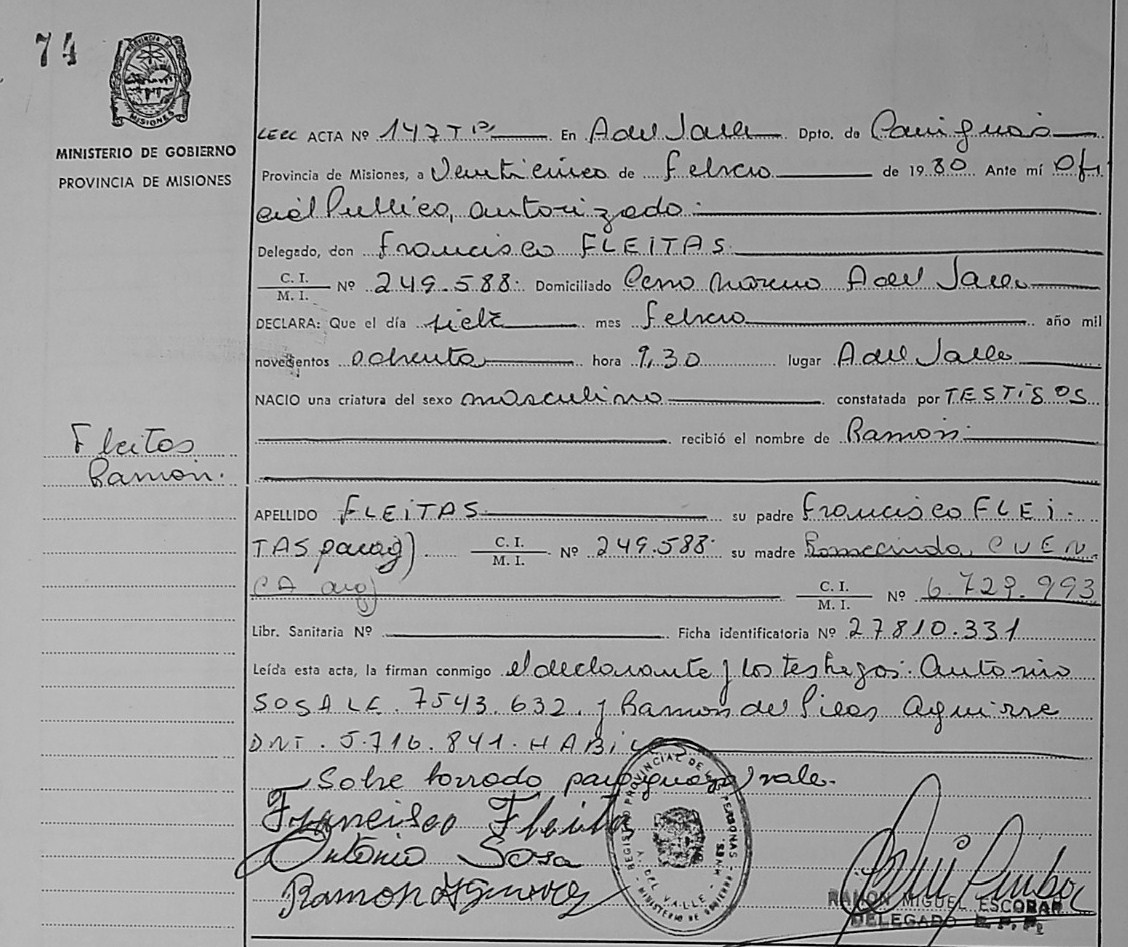 74
PROVINCIA DE
MISIONES
MINISTERIO DE GOBIERNO
PROVINCIA DE MISIONES
ACTA Nº 147 Tº En A del Valle Dpto. de Cainguás
Provincia de Misiones, a Veinticinco de Febrero de 1980 Ante mí Ofi
cial Publico, autorizado.
Delegado, don Francisco FLEITAS
C. I.
M. I. Nº 249.588. Domiciliado Cerro Moreno A del Valle
DECLARA: Que el día siete mes Febrero año mil
novecientos ochenta hora 9,30 lugar A del Valle
NACIO una criatura del sexo masculino constatada por TESTIGOS
recibió el nombre de Ramón.
Fleitas
Ramón.
APELLIDO FLEITAS su padre Francisco FLEI-
TAS parag) C. I.
M. I. Nº 249.588. su madre CUEN
CA arg) C. I.
M. I. Nº 6.729.993
Libr. Sanitaria Nº Ficha identificatoria Nº 27810.331
Leída esta acta, la firman conmigo el declarante y los testigos: Antonio
SOSA LE. 7543.632. y Ramón del Aguirre
DNI. 5.716.841. HABILES
Sobre borrado vale.
Francisco Fleitas
Antônio Sosa
Ramon
REGISTRO PROVINCIAL DE LAS PERSONAS
A. DEL VALLE - MNES.
MINISTERIO DE GOBIERNO
RAMON MIGUEL ESCOBAR
DELEGADO R. P. P.